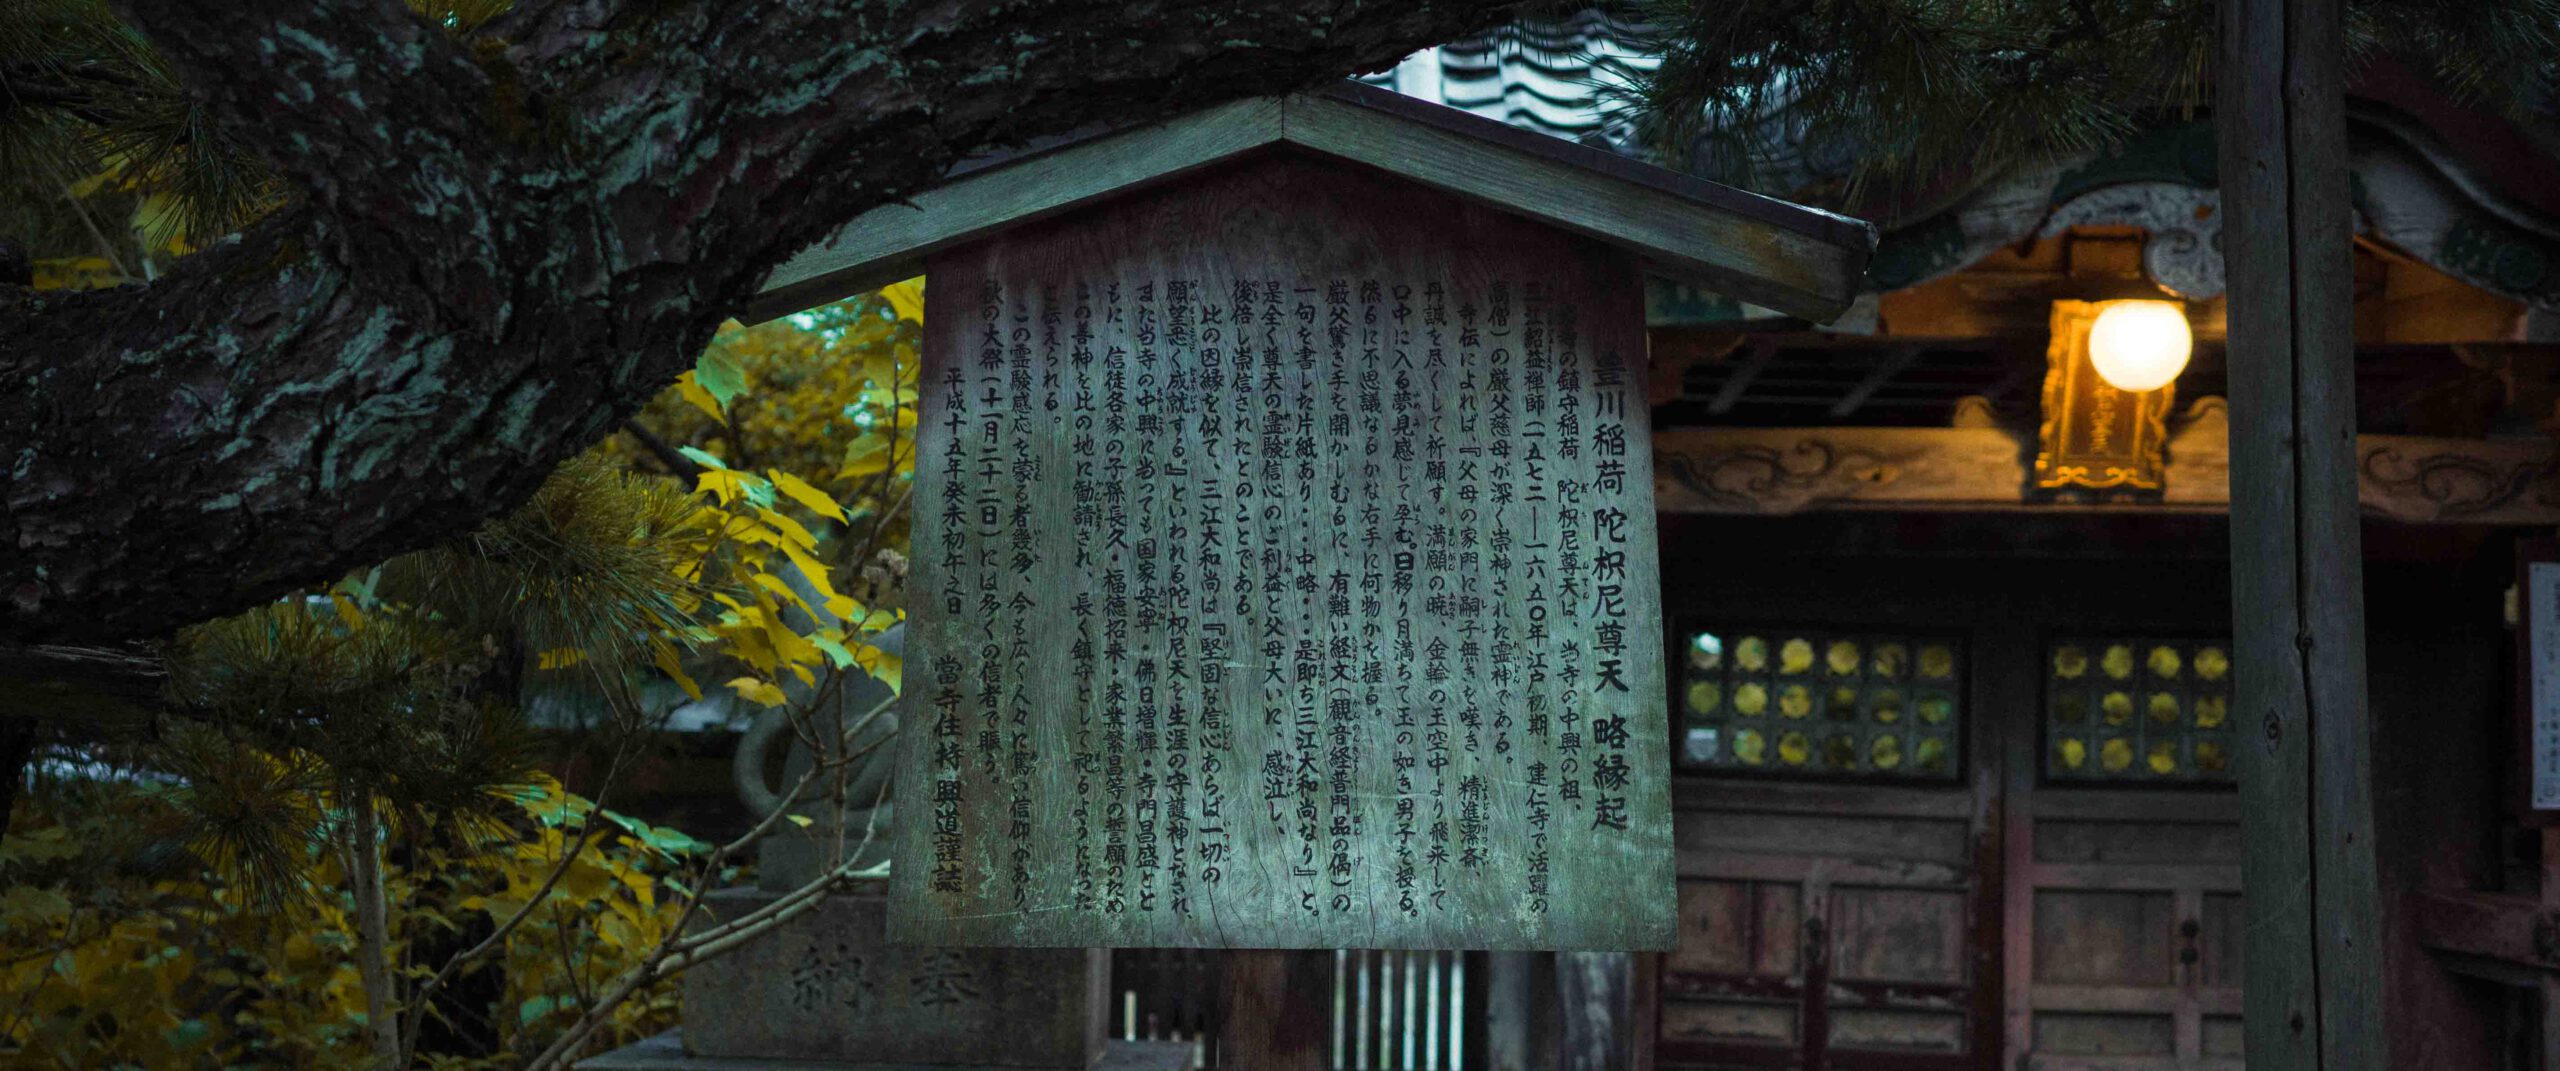 豊川稲荷 陀枳尼尊天 略縁起
の鎮守稲荷 陀枳尼尊天は、当寺の中興の祖、
三江紹益禅師(一五七二―一六五〇年江戸初期、建仁寺で活躍の
高僧)の厳父慈母が深く崇神された霊神である。
寺伝によれば、『父母の家門に嗣子無きを嘆き、精進潔斎、
丹誠を尽くして祈願す。満願の暁、金輪の玉空中より飛来して
口中に入る夢見感じて孕む。日移り月満ちて玉の如き男子を授る。
然るに不思議なるかな右手に何物かを握る。
厳父驚き手を開かしむるに、有難い経文(観音経普門品の偈)の
一句を書した片紙あり・・・中略・・・是即ち三江大和尚なり』と。
是全く尊天の霊験信心のご利益と父母大いに、感泣し、
後倍し崇信されたとのことである。
比の因縁を似て、三江大和尚は『堅固な信心あらば一切の
願望悉く成就する』といわれる陀枳尼天を生涯の守護神となされ、
また当寺の中興に当っても国家安寧・佛日増輝・寺門昌盛とと
もに、信徒各家の子孫長久・福徳招来・家業繁昌等の誓願のため
この善神を比の地に勧請され、長く鎮守として祀るようになった
と伝えられる。
この霊験感応を蒙る者幾多、今も広く人々に篤い信仰があり、
秋の大祭(十一月二十二日)には多くの信者で賑う。
平成十五年癸未初午之日 當寺住持 興道謹誌
奉納